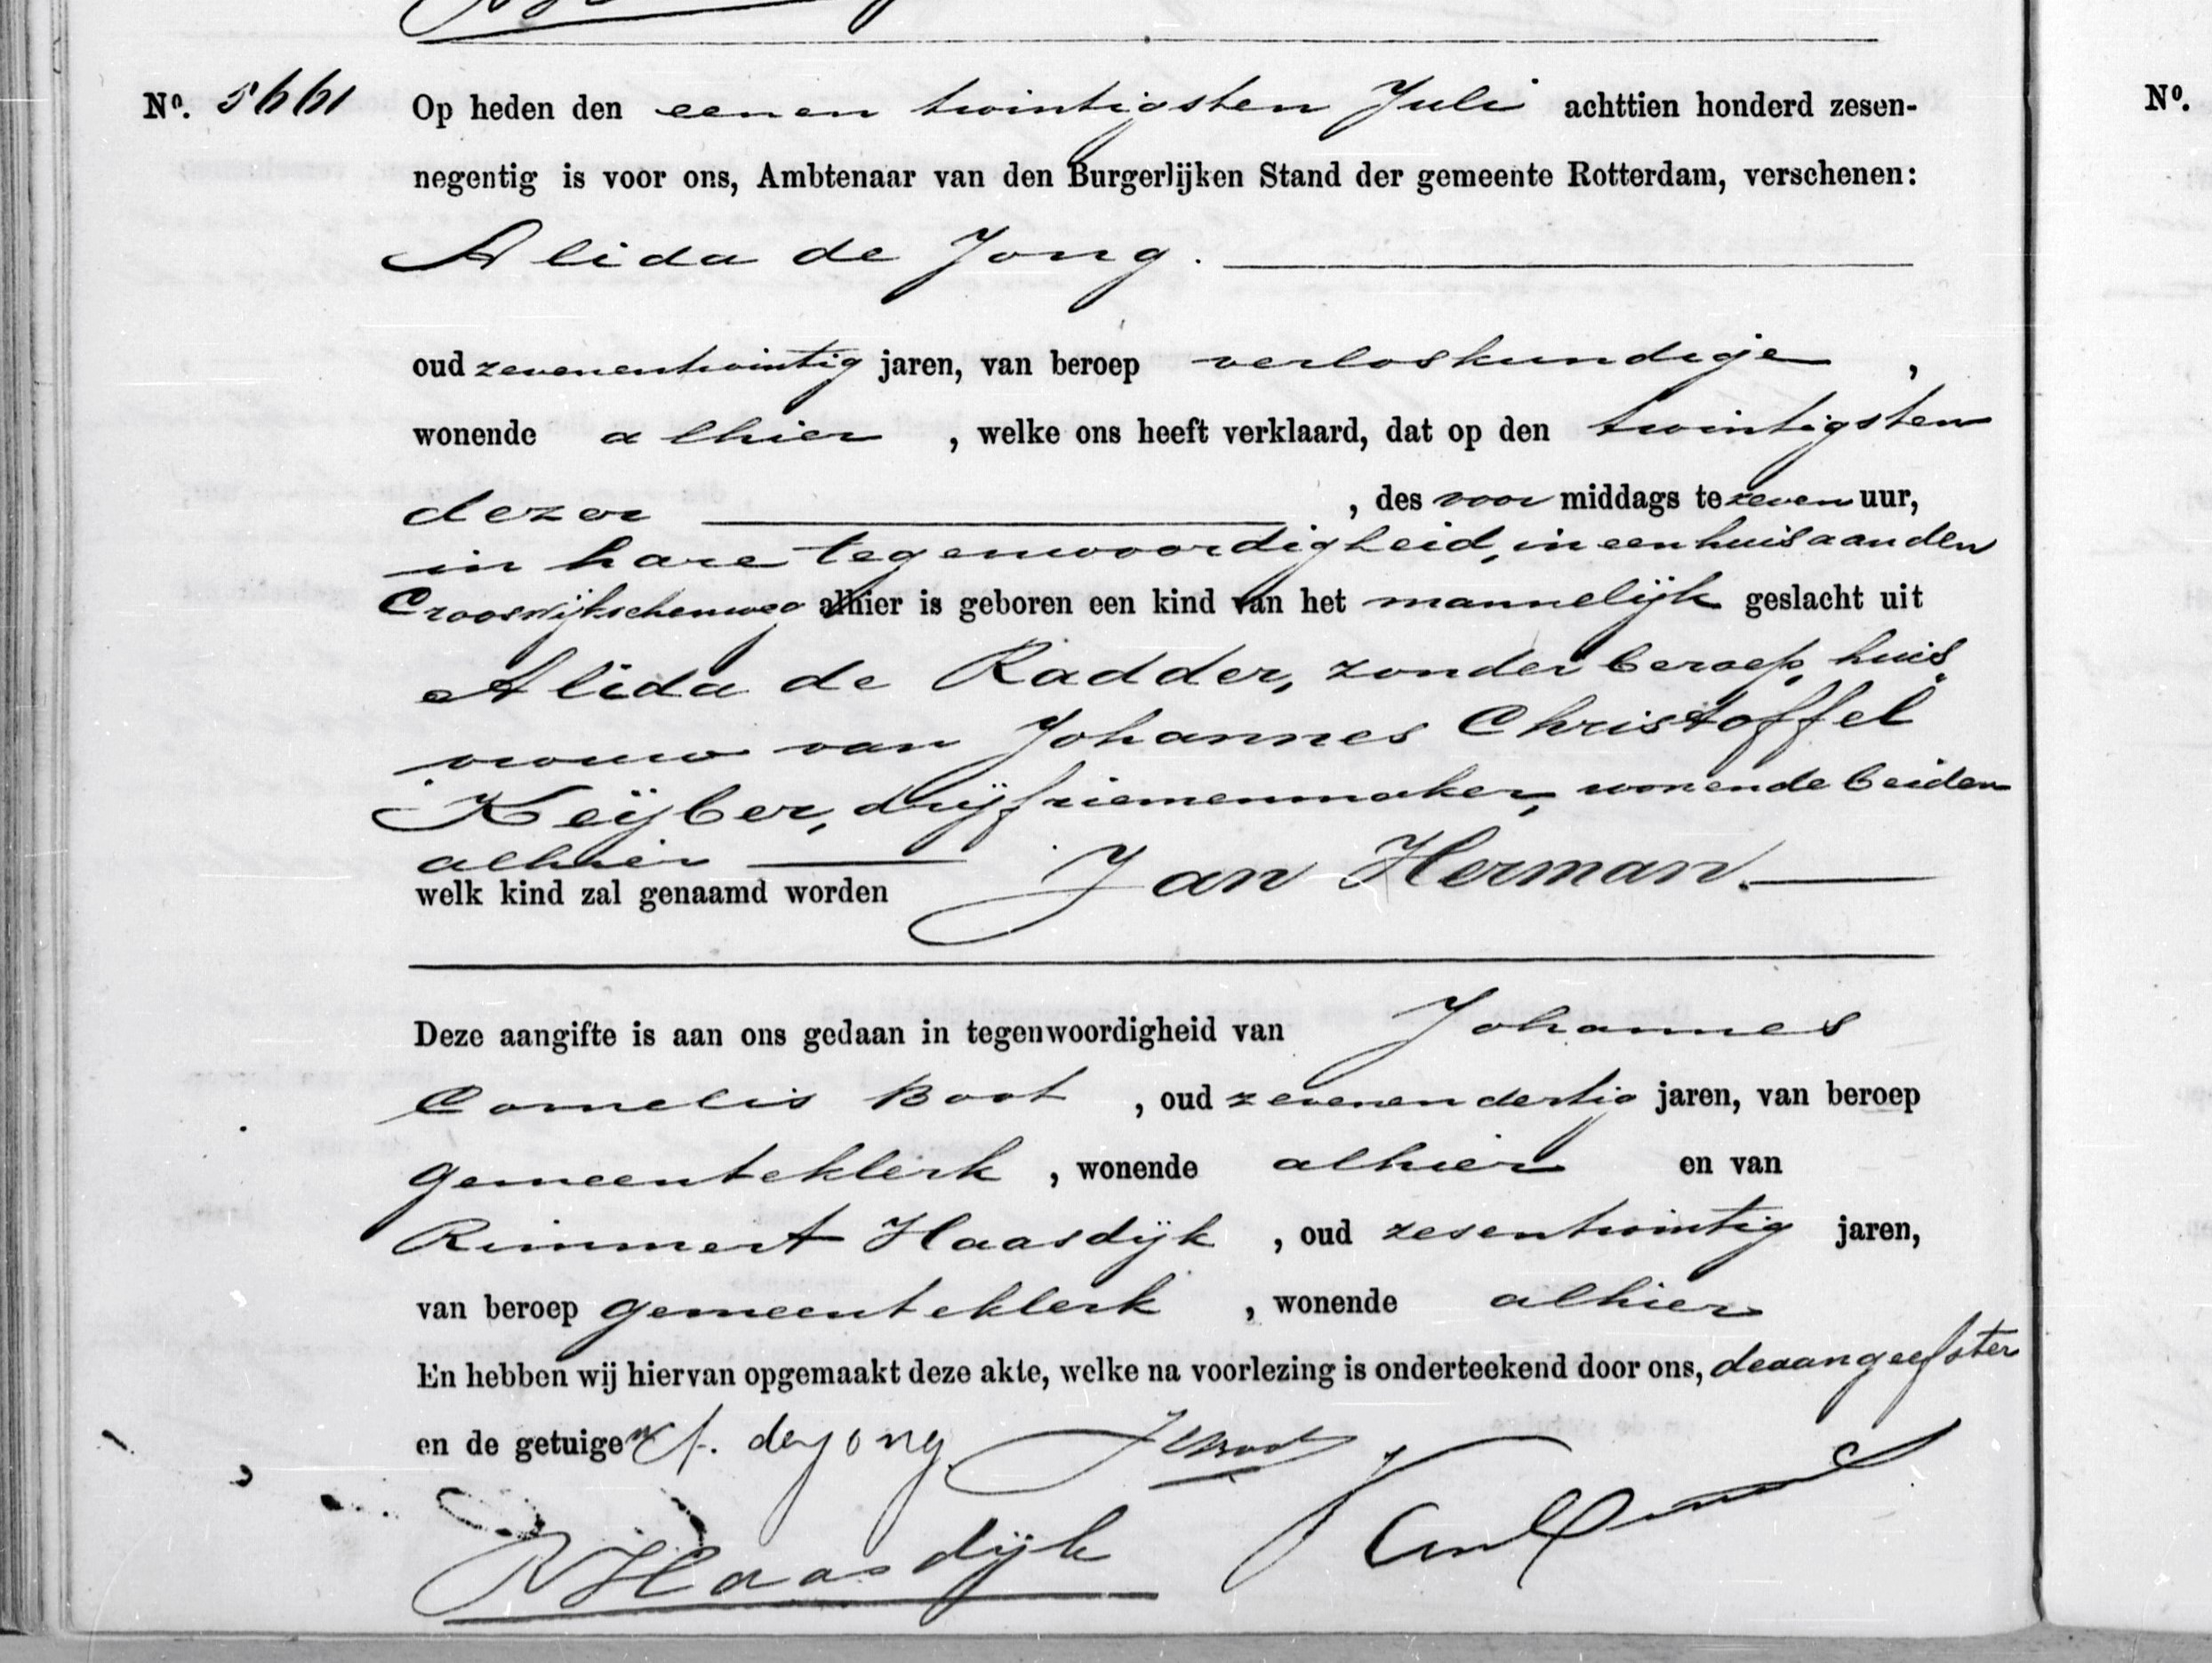 Nº. 5661 Op heden den eenen twintigsten Juli achttien honderd zesen-
Nº.
negentig is voor ons, Ambtenaar van den Burgerlijken Stand der gemeente Rotterdam, verschenen:
Alida de Jong.
oud zevenentwintig jaren, van beroep verloskundige,
wonende alhier, welke ons heeft verklaard, dat op den twintigsten
dezer, des voor middags te zeven uur,
in hare tegenwoordigheid, in een huis aan den
Crooswijkschenweg alhier is geboren een kind van het mannelijk geslacht uit
Alida de Radder, zonder beroep, huis
vrouw van Johannes Christoffel
Keijber, drijfriemenmaker, wonende beiden
alhier
welk kind zal genaamd worden Jan Herman.
Deze aangifte is aan ons gedaan in tegenwoordigheid van Johannes
Cornelis Boot, oud zevenendertig jaren, van beroep
gemeenteklerk, wonende alhier en van
Rimmert Haasdijk, oud zesentwintig jaren,
van beroep gemeenteklerk, wonende alhier
En hebben wij hiervan opgemaakt deze akte, welke na voorlezing is onderteekend door ons, de aangeefster
en de getuigen A. de Jong JCBoot
RHaasdijk